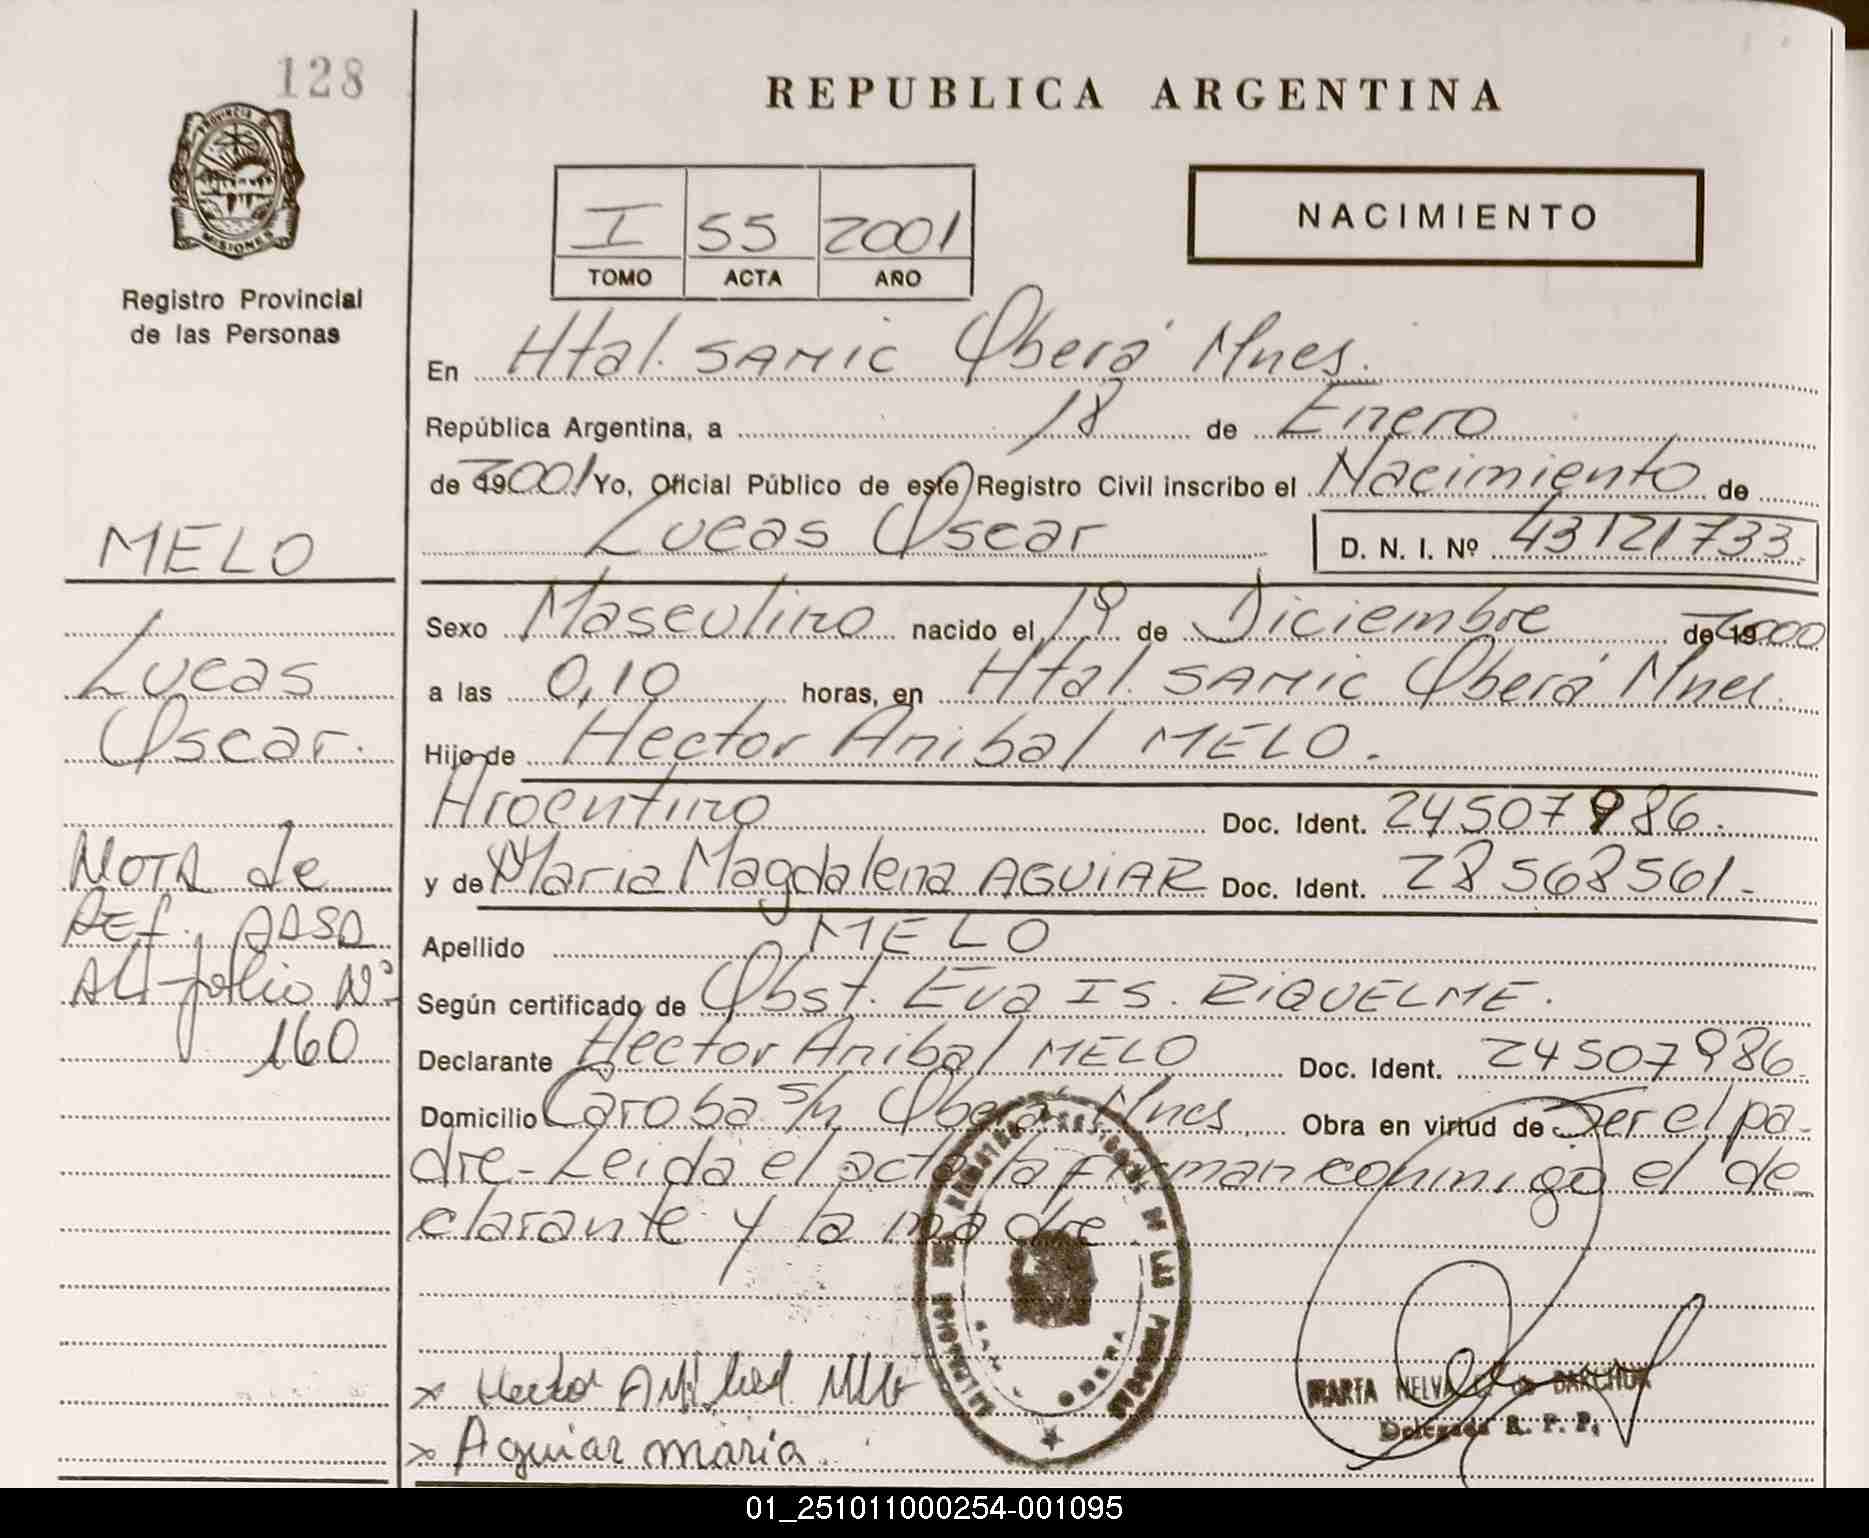 128
REPUBLICA ARGENTINA
PROVINCIA DE
MISIONES
Registro Provincial
de las Personas
I 55 2001
TOMO ACTA AÑO
NACIMIENTO
En Htal. SAMIC Oberá Mnes.
República Argentina, a 18 de Enero
de 2001 Yo, Oficial Público de este Registro Civil inscribo el Nacimiento de
Lucas Oscar D. N. I. Nº 43121733
MELO
Lucas
Oscar.
Sexo Masculino nacido el 19 de Diciembre de 2000
a las 0,10 horas, en Htal. SAMIC Oberá Mnes.
Hijo de Hector Anibal MELO.
Argentino Doc. Ident. 24507986.
y de Maria Magdalena AGUIAR Doc. Ident. 28568561.-
Apellido MELO
Según certificado de Obst. Eva IS. RIQUELME.
Declarante Hector Anibal MELO Doc. Ident. 24507986.
Domicilio Caroba s/n Oberá Mnes Obra en virtud de Ser el pa-
dre- Leida el acta la firman conmigo el de-
clarante y la madre
NOTA de
REf. PASA
AL folio Nº
160
x Hector Anibal Melo
x Aguiar maria.
MARTA NELVA de
Delegada R. P. P.
01_251011000254-001095